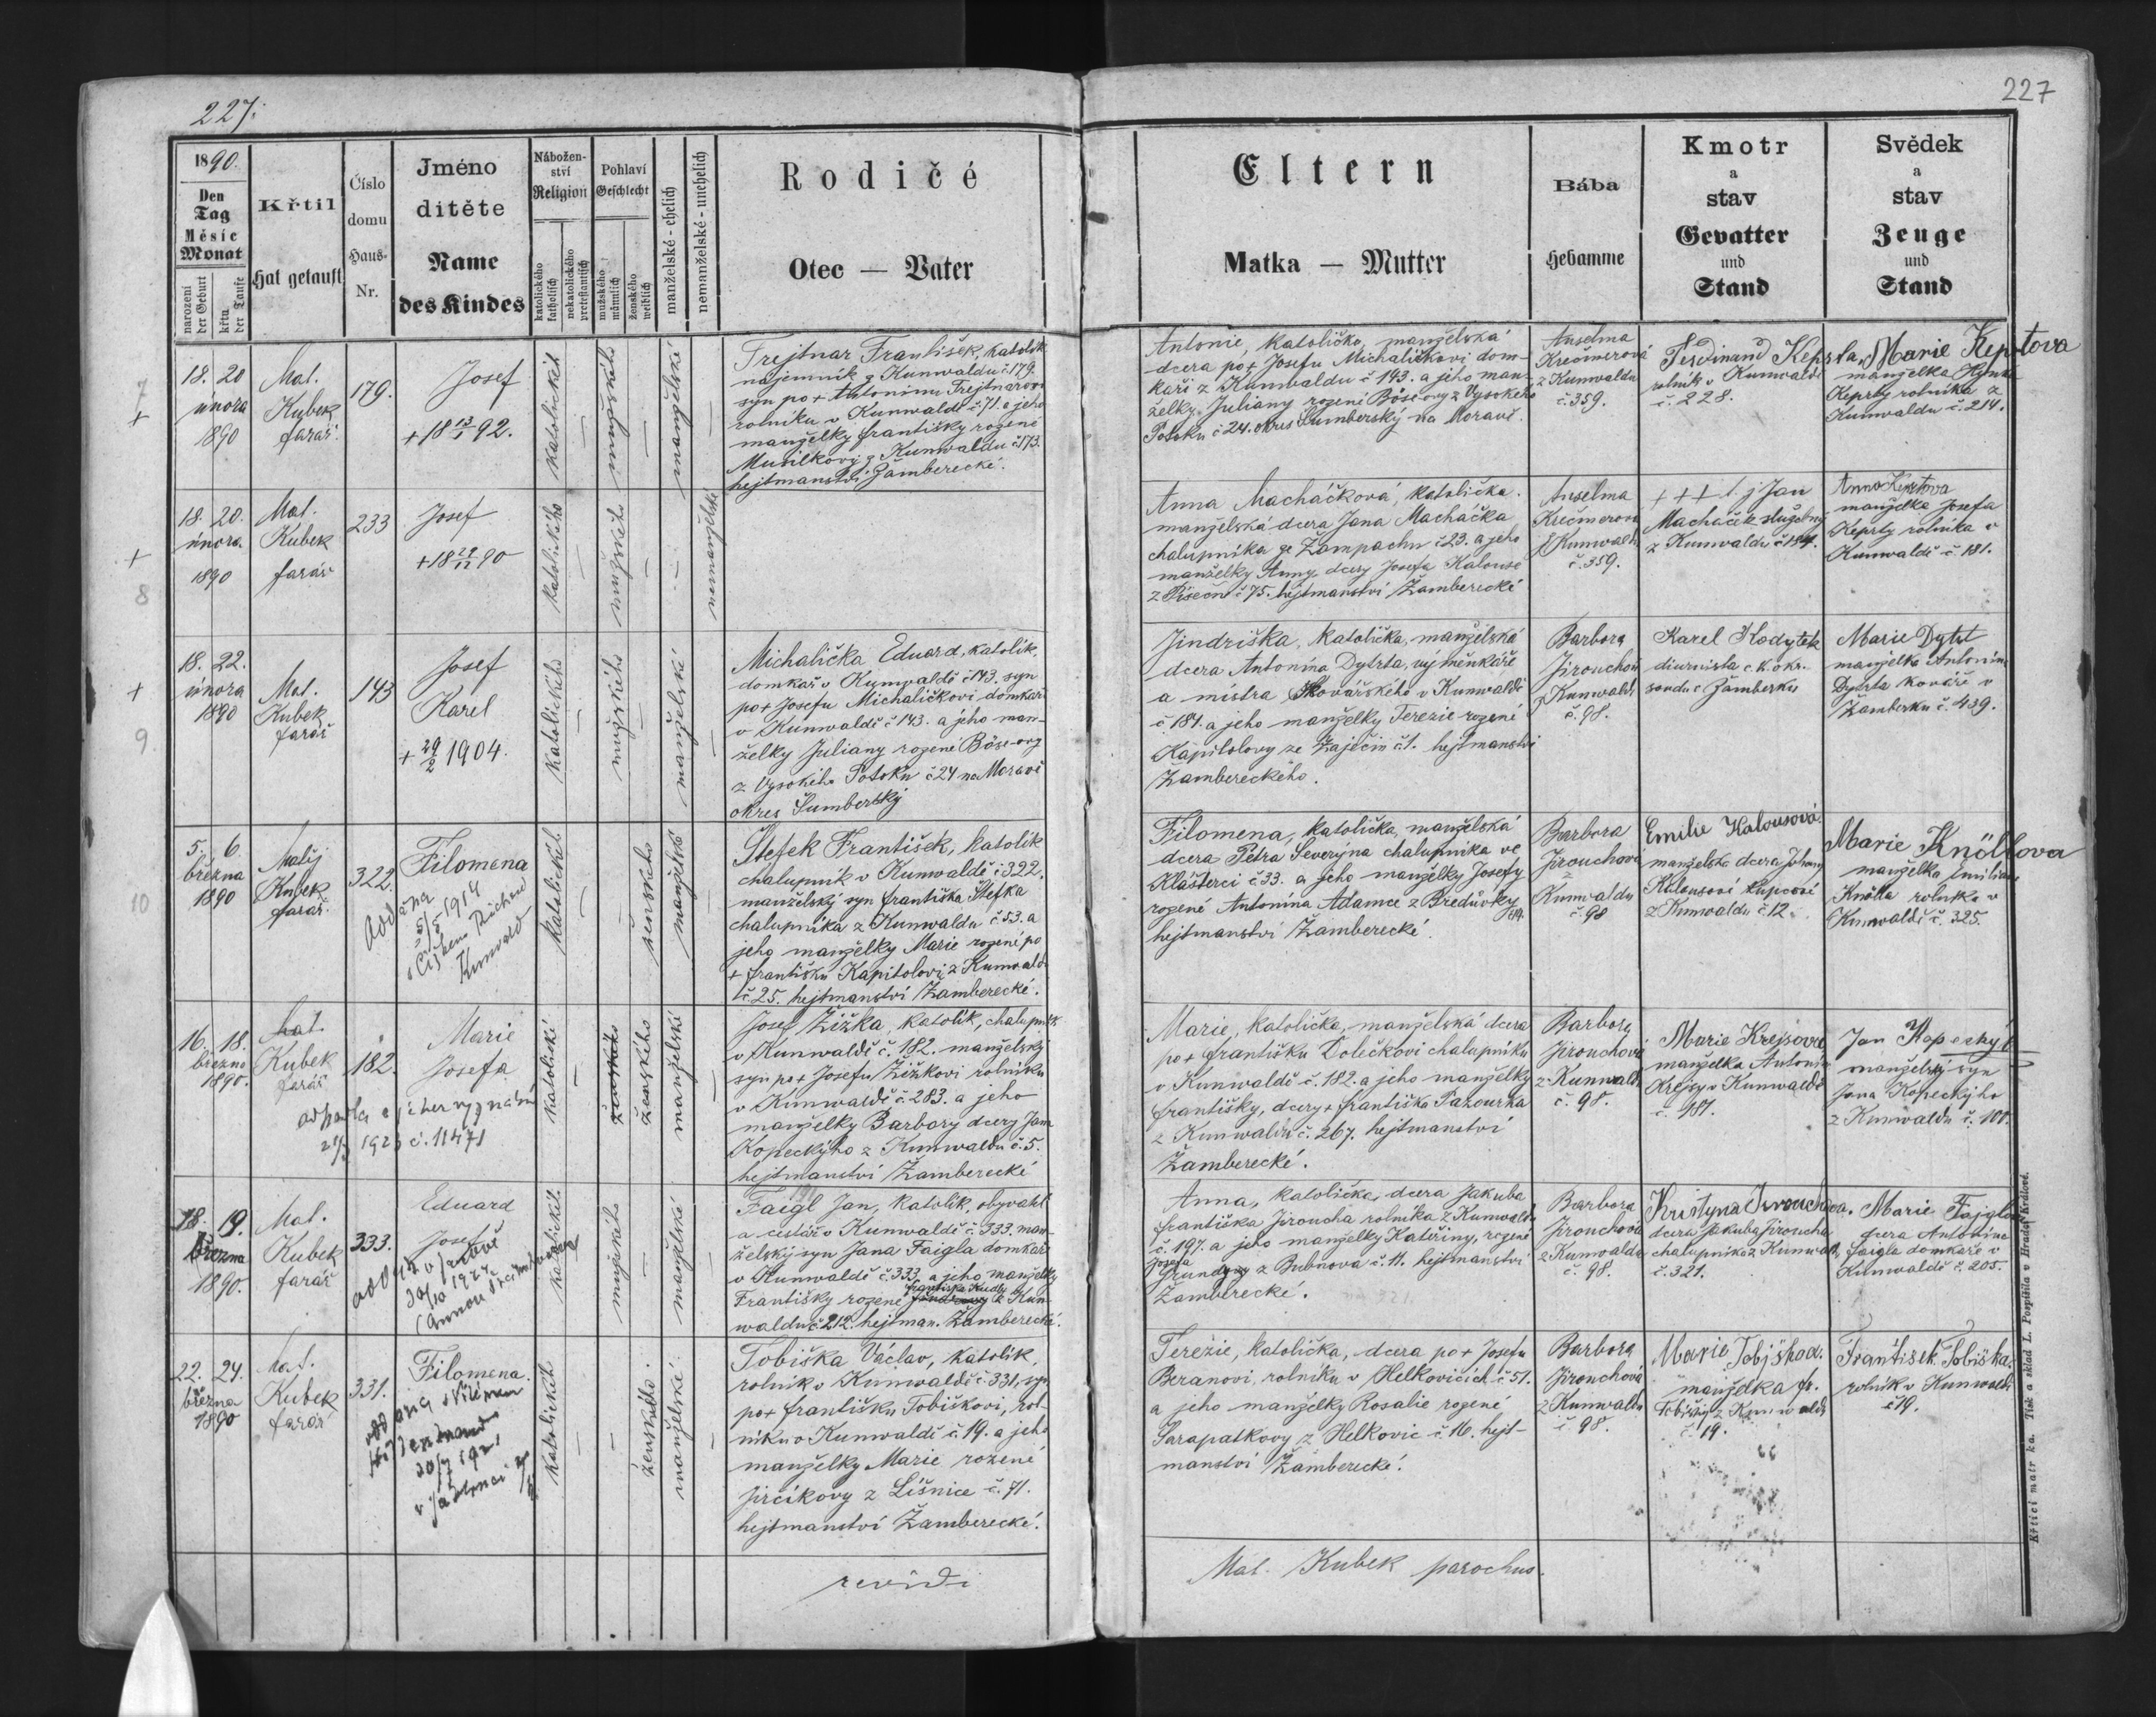 227.
227
1890.
Den
Tag
Měsíc
Monat
narození
der Geburt
křtu
der Taufe
Křtil
Hat getauft
Číslo
domu
Haus-
Nr.
Jméno
dítěte
Name
des Kindes
Nábožen-
ství
Religion
katolického
katholisch
nekatolického
protestantisch
Pohlaví
Geschlecht
mužského
männlich
ženského
weiblich
manželské - ehelich
nemanželské - unehelich
Rodičé
Otec — Vater
Eltern
Matka — Mutter
Bába
Hebamme
Kmotr
a
stav
Gevatter
und
Stand
Svědek
a
stav
Zeuge
und
Stand
7
+
18. 20
února
1890
Mat.
Kubek
farář.
179.
Josef
+18 13/1 92.
katolického
mužského
manželské
Trejtnar František, katolík
nájemník z Kunwaldu č. 179.
syn po + Antonínu Trejtnarovi
rolníku v Kunwaldě č. 71. a jeho
manželky Františky rozené
Musilkovy z Kunwaldu č. 173.
hejtmanství Žamberecké.
Antonie, katolička, manželská
dcera po + Josefu Michaličkovi dom-
káři z Kunwaldu č. 143. a jeho man-
želky Juliany rozené Böse-ovy z Vysokého
Potoku č. 24. okres Šumberský na Moravě.
Anselma
Krečmerová
z Kunwaldu
č. 359.
Ferdinand Keprta,
rolník v Kunwaldě
č. 228.
Marie Keprtova
manželka
Keprty rolníka z
Kunwaldu č. 214.
+
8
18. 20.
února.
1890
Mat.
Kubek
farář
233
Josef
katolického
mužského
nemanželské
Anna Macháčková, katolička.
manželská dcera Jana Macháčka
chalupníka ze Žampachu č. 23. a jeho
manželky Anny, dcery Josefa Kalouse
z Písečné č. 75. hejtmanství Žamberecké
Anselma
Krečmerova
z Kunwaldu
č. 359.
+++ t. j. Jan
Macháček služebný
z Kunwaldu
Anna Keprtova
manželka Josefa
Keprty rolníka v
Kunwaldě č. 181.
+
9.
18. 22.
února
1890
Mat.
Kubek
farář
143
Josef
Karel
+ 29/2 1904.
katolického
mužského
manželské
Michalička Eduard, katolík,
domkář v Kunwaldě č. 143. syn
po + Josefu Michaličkovi domkáři
v Kunwaldě č. 143. a jeho man-
želky Juliany rozené Böse-ovy
z Vysokého Potoku č. 24 na Moravě
okres Šumberský
Jindřiška, katolička, manželská
dcera Antonína Dytrta, výměnkáře
a mistra kovářského v Kunwaldě
č. 181. a jeho manželky Terezie rozené
Kapitolovy ze Zaječin č. 1. hejtmanství
Žambereckého.
Barbora
Jirouchová
z Kunwaldu
č. 98.
Karel Hodytek
diurnista c. k. okr.
soudu v Žamberku
Marie Dytrt
manželka Antonína
Dytrta kováře v
Žamberku č. 439.
10
5. 6.
března
1890
Matěj
Kubek
farář.
322.
Filomena
Oddána
5/5 1914
Kunvald
katolické
ženského
manželské
Štefek František, katolík
chalupník v Kunwaldě č. 322,
manželský syn Františka Štefka
chalupníka z Kunwaldu č. 53. a
jeho manželky Marie rozené po
+ Františku Kapitolovi z Kunwaldu
č. 25. hejtmanství Žamberecké.
Filomena, katolička, manželská
dcera Petra Severýna chalupníka ve
Klášterci č. 33. a jeho manželky Josefy
rozené Antonína Adamce z Bredůvky
hejtmanství Žamberecké.
Barbora
Jirouchova
z
Kunwaldu
č. 98
Emilie Halousová
manželská dcera
kupcové
z Kunwaldu č. 12.
Marie Knöllova
manželka Emiliana
Knölla rolníka v
Kunwaldě č. 325.
16. 18.
března
1890.
Mat.
Kubek
farář
182.
Marie
Josefa
odpadla
1923 č. 11471
katolické
ženského
manželské
Josef Žižka, katolík, chalupník
v Kunwaldě č. 182. manželský
syn po + Josefu Žižkovi rolníku
v Kunwaldě č. 283. a jeho
manželky Barbory dcery Jana
Kopeckýho z Kunwaldu č. 5.
hejtmanství Žamberecké
Marie, katolička, manželská dcera
po + Františku Dolečkovi chalupníku
v Kunwaldě č. 182. a jeho manželky
Františky, dcery + Františka Pazourka
z Kunwaldu č. 267. hejtmanství
Žamberecké.
Barbora
Jirouchová
z Kunwaldu
č. 98.
Marie Krejsova
manželka Antonína
Krejsy v Kunwaldě
č. 181.
Jan Kopecký
manželský syn
Jana Kopeckýho
z Kunwaldu č. 101.
18. 19.
března
1890.
Mat.
Kubek
farář
333.
Eduard
Josef
katolické
mužského
manželské
Faigl Jan, katolík, obyvatel
a cestář v Kunwaldě č. 333. man-
želský syn Jana Faigla domkáře
v Kunwaldě č. 333 a jeho manželky
Františky rozené Františka z Kun-
waldu č. 212. hejtman. Žamberecké.
Anna, katolička, dcera Jakuba
Františka Jiroucha rolníka z Kunwaldu
č. 197. a jeho manželky Kateřiny, rozené
Josefa
z Bubnova č. 11. hejtmanství
Žamberecké.
Barbora
Jirouchová
z Kunwaldu
č. 98.
Kristyna Jirouchova.
dcera Jakuba Jiroucha
chalupníka z Kunwaldu
č. 321.
Marie Fajglova
dcera Antonína
Faigla domkáře v
Kunwaldě č. 205.
22. 24.
března
1890
Mat.
Kubek
farář
331.
Filomena.
katolického
ženského.
manželské
Tobiška Václav, katolík,
rolník v Kunwaldě č. 331, syn
po + Františku Tobiškovi, rol-
níku v Kunwaldě č. 19. a jeho
manželky Marie rozené
Jirčíkovy z Líšnice č. 71.
hejtmanství Žamberecké.
Terezie, katolička, dcera po + Josefu
Beranovi, rolníku v Helkovicích č. 51.
a jeho manželky Rosalie rozené
Sarapatkovy z Helkovic č. 16. hejt-
manství Žamberecké.
Barbora
Jirouchová
z Kunwaldu
č. 98.
Marie Tobiškova.
manželka Fr.
Tobišky z Kunwaldu
č. 19.
František Tobiška.
rolník v Kunwaldě
č. 19.
revidi
Mat. Kubek parochus.
Křtící matrika. Tisk a sklad L. Pospíšila v Hradci Králové.